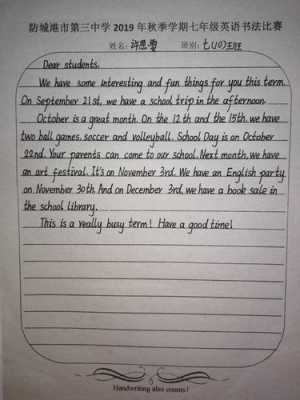 防城港市第三中学 2019 年秋季学期七年级英语书法比赛
姓名: 许思雪 班别: 七(10)班
Dear students,
We have some interesting and fun things for you this term.
On September 21st, we have a school trip in the afternoon.
October is a great month. On the 12 th and the 15th, we have
two ball games, soccer and volleyball. School Day is on October
22nd. Your parents can come to our school. Next month, we have
an art festival. It's on November 3rd. We have an English party
on November 30th. And on December 3rd, we have a book sale in
the school library.
This is a really busy term! Have a good time!
Handwriting also counts!